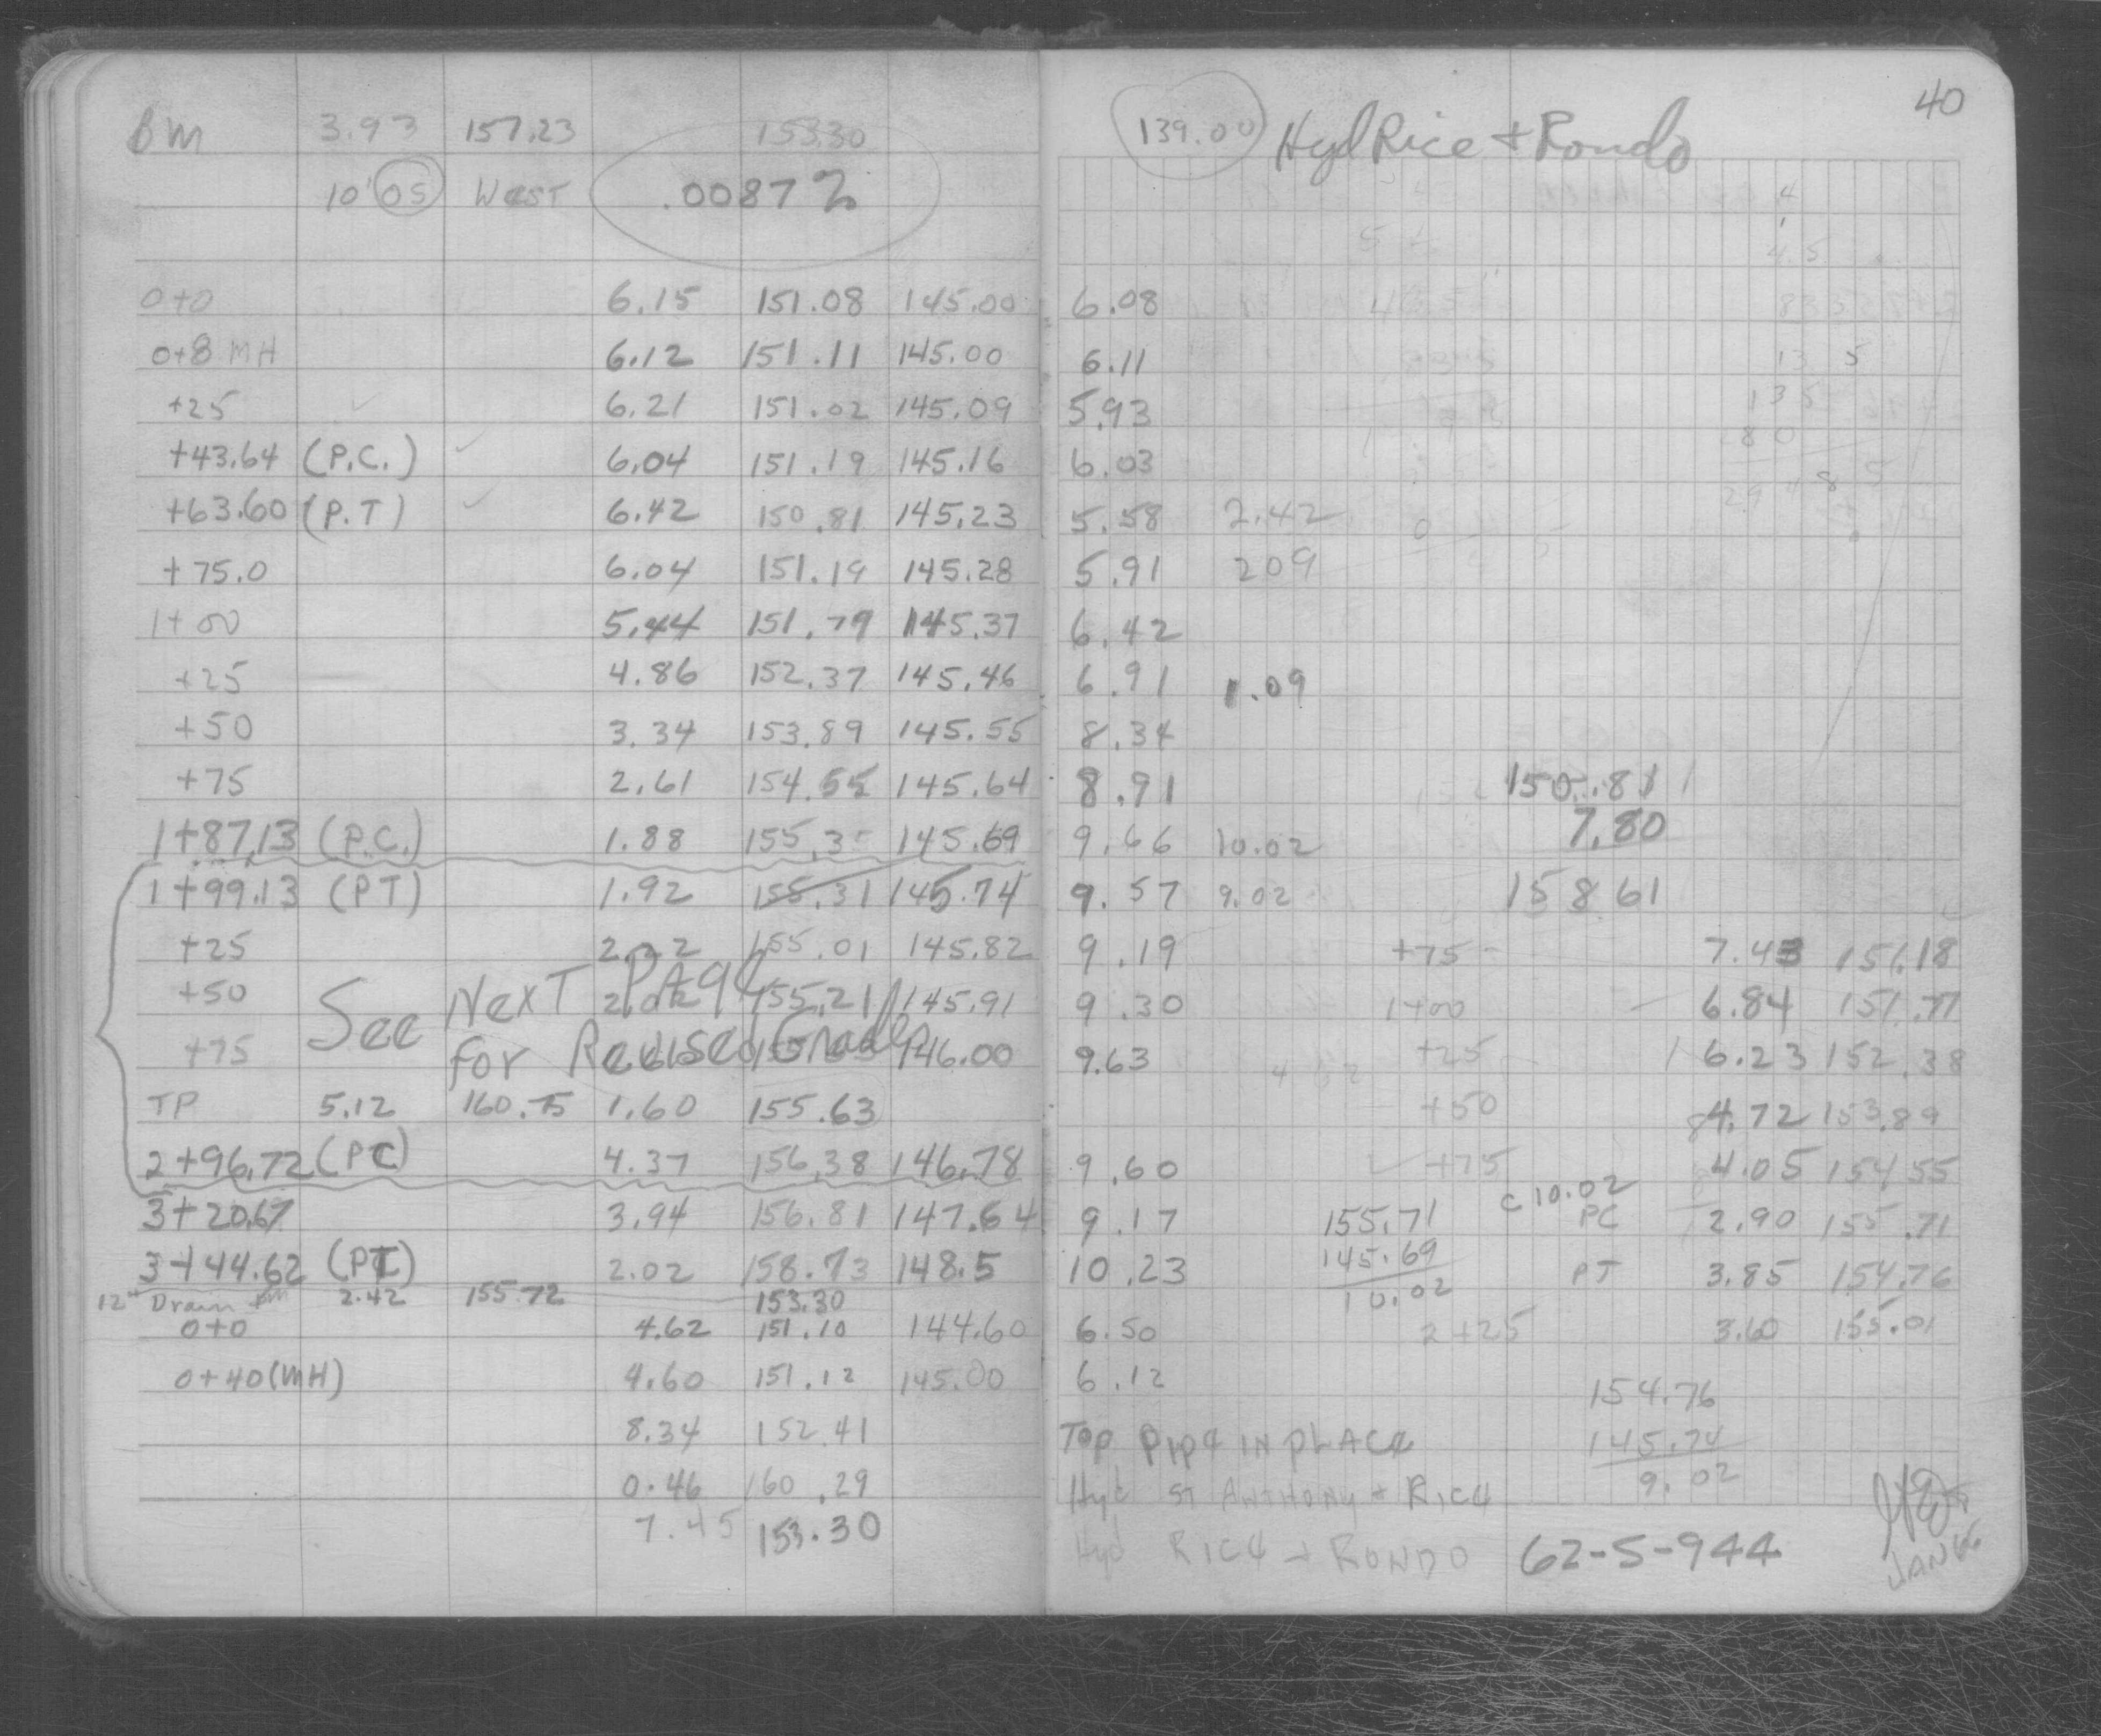 40
BM 3.93 157.23 153.30 139.00 Hyd Rice + Rondo
10' 05 West .00872
0+0 6.15 151.08 145.00 6.08
0+8 MH 6.12 151.11 145.00 6.11
+25 6.21 151.02 145.09 5.93
+43.64 (P.C.) 6.04 151.19 145.16 6.03
+63.60 (P.T) 6.42 150.81 145.23 5.58 2.42
+75.0 6.04 151.19 145.28 5.91 209
1+00 5.44 151.79 145.37 6.42
+25 4.86 152.37 145.46 6.91 1.09
+50 3.34 153.89 145.55 8.34
+75 2.61 154.55 145.64 8.91 150.81
7.80
1+87.13 (P.C.) 1.88 145.69 9.66 10.02
1+99.13 (PT) 1.92 155.31 145.74 9.57 9.02 158.61
+25 2.22 155.01 145.82 9.19 +75 7.43 151.18
+50 155.21 145.91 9.30 1+00 6.84 151.77
See Next Page
for Revised Grade
+75 146.00 9.63 +25 6.23 152.38
TP 5.12 160.75 1.60 155.63 +50 4.72 153.89
2+96.72 (PC) 4.37 156.38 146.78 9.60 +75 4.05 154.55
3+20.67 3.94 156.81 147.64 9.17 155.71 C 10.02 PC 2.90 155.71
3+44.62 (PT) 2.02 158.73 148.5 10.23 145.69 PT 3.85 154.76
12" Drain 2.42 155.72 153.30 10.02
0+0 4.62 151.10 144.60 6.50 2+25 3.60 155.01
0+40 (MH) 4.60 151.12 145.00 6.12 154.76
8.34 152.41 Top Pipe in place 145.74
0.46 160.29 Hyd St Anthony + Rice 9.02
7.45 153.30 Hyd Rice + Rondo 62-S-944
JAN